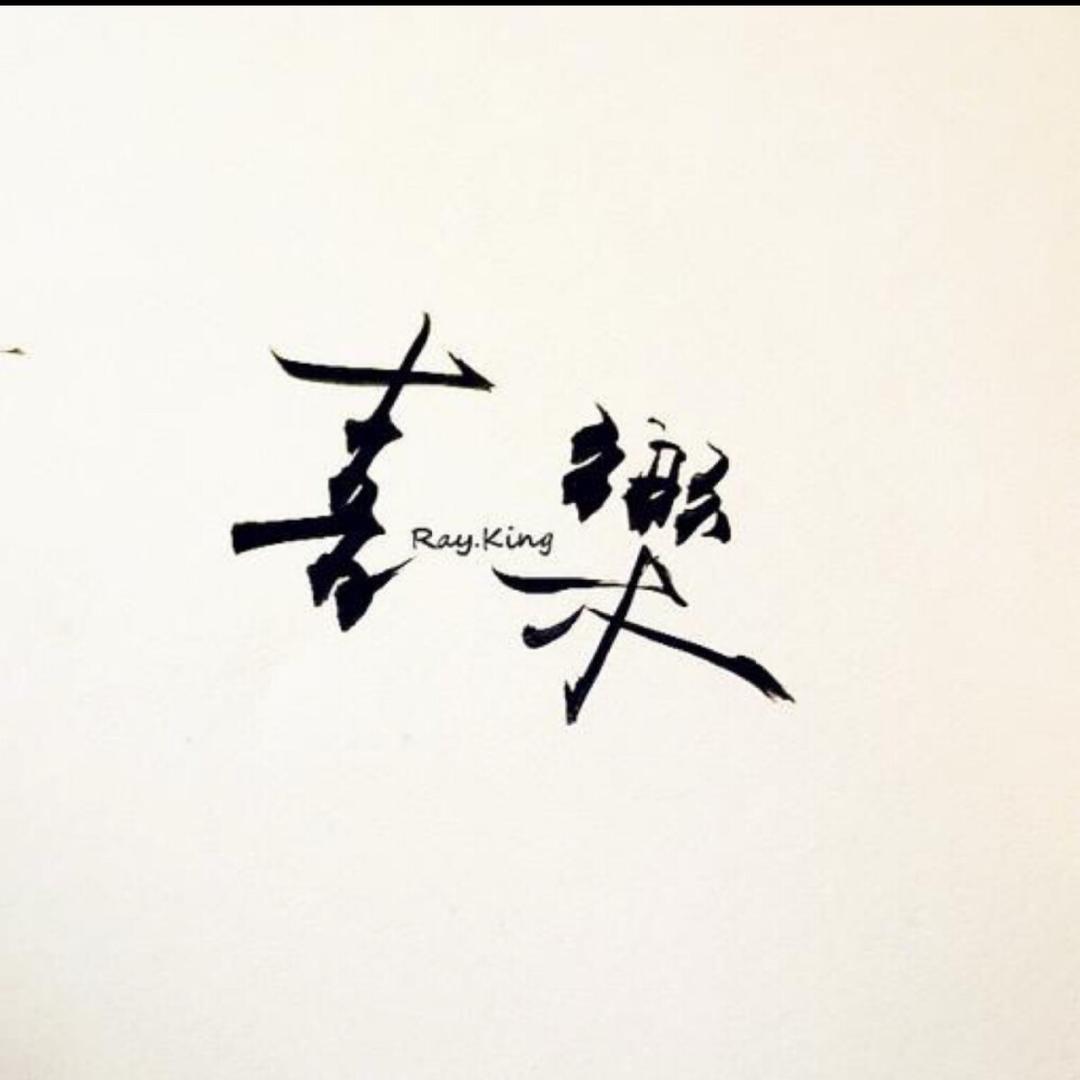 喜樂
Ray.King